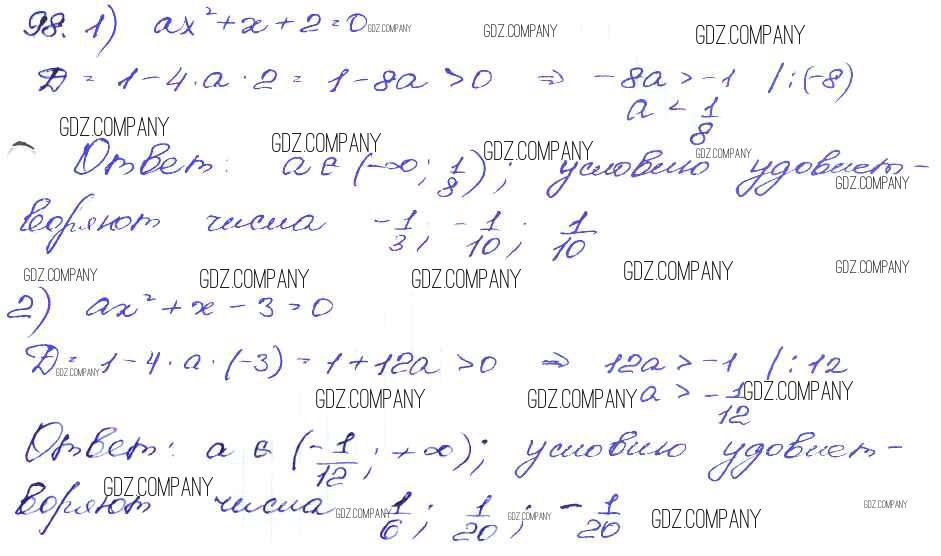 98. 1) ax² + x + 2 = 0 GDZ.COMPANY GDZ.COMPANY GDZ.COMPANY
D = 1 - 4 · a · 2 = 1 - 8a > 0 ⇒ -8a > -1 / : (-8)
a < 1/8
GDZ.COMPANY GDZ.COMPANY GDZ.COMPANY GDZ.COMPANY
Ответ: a ∈ (-∞; 1/8); условию удовлет-
GDZ.COMPANY
воряют числа -1/3; -1/10; 1/10
GDZ.COMPANY GDZ.COMPANY GDZ.COMPANY GDZ.COMPANY GDZ.COMPANY
2) ax² + x - 3 = 0
D = 1 - 4 · a · (-3) = 1 + 12a > 0 ⇒ 12a > -1 / : 12
GDZ.COMPANY
GDZ.COMPANY GDZ.COMPANY a > -1/12 GDZ.COMPANY
Ответ: a ∈ (-1/12; +∞); условию удовлет-
GDZ.COMPANY
воряют числа 1/6; 1/20; -1/20
GDZ.COMPANY GDZ.COMPANY GDZ.COMPANY GDZ.COMPANY